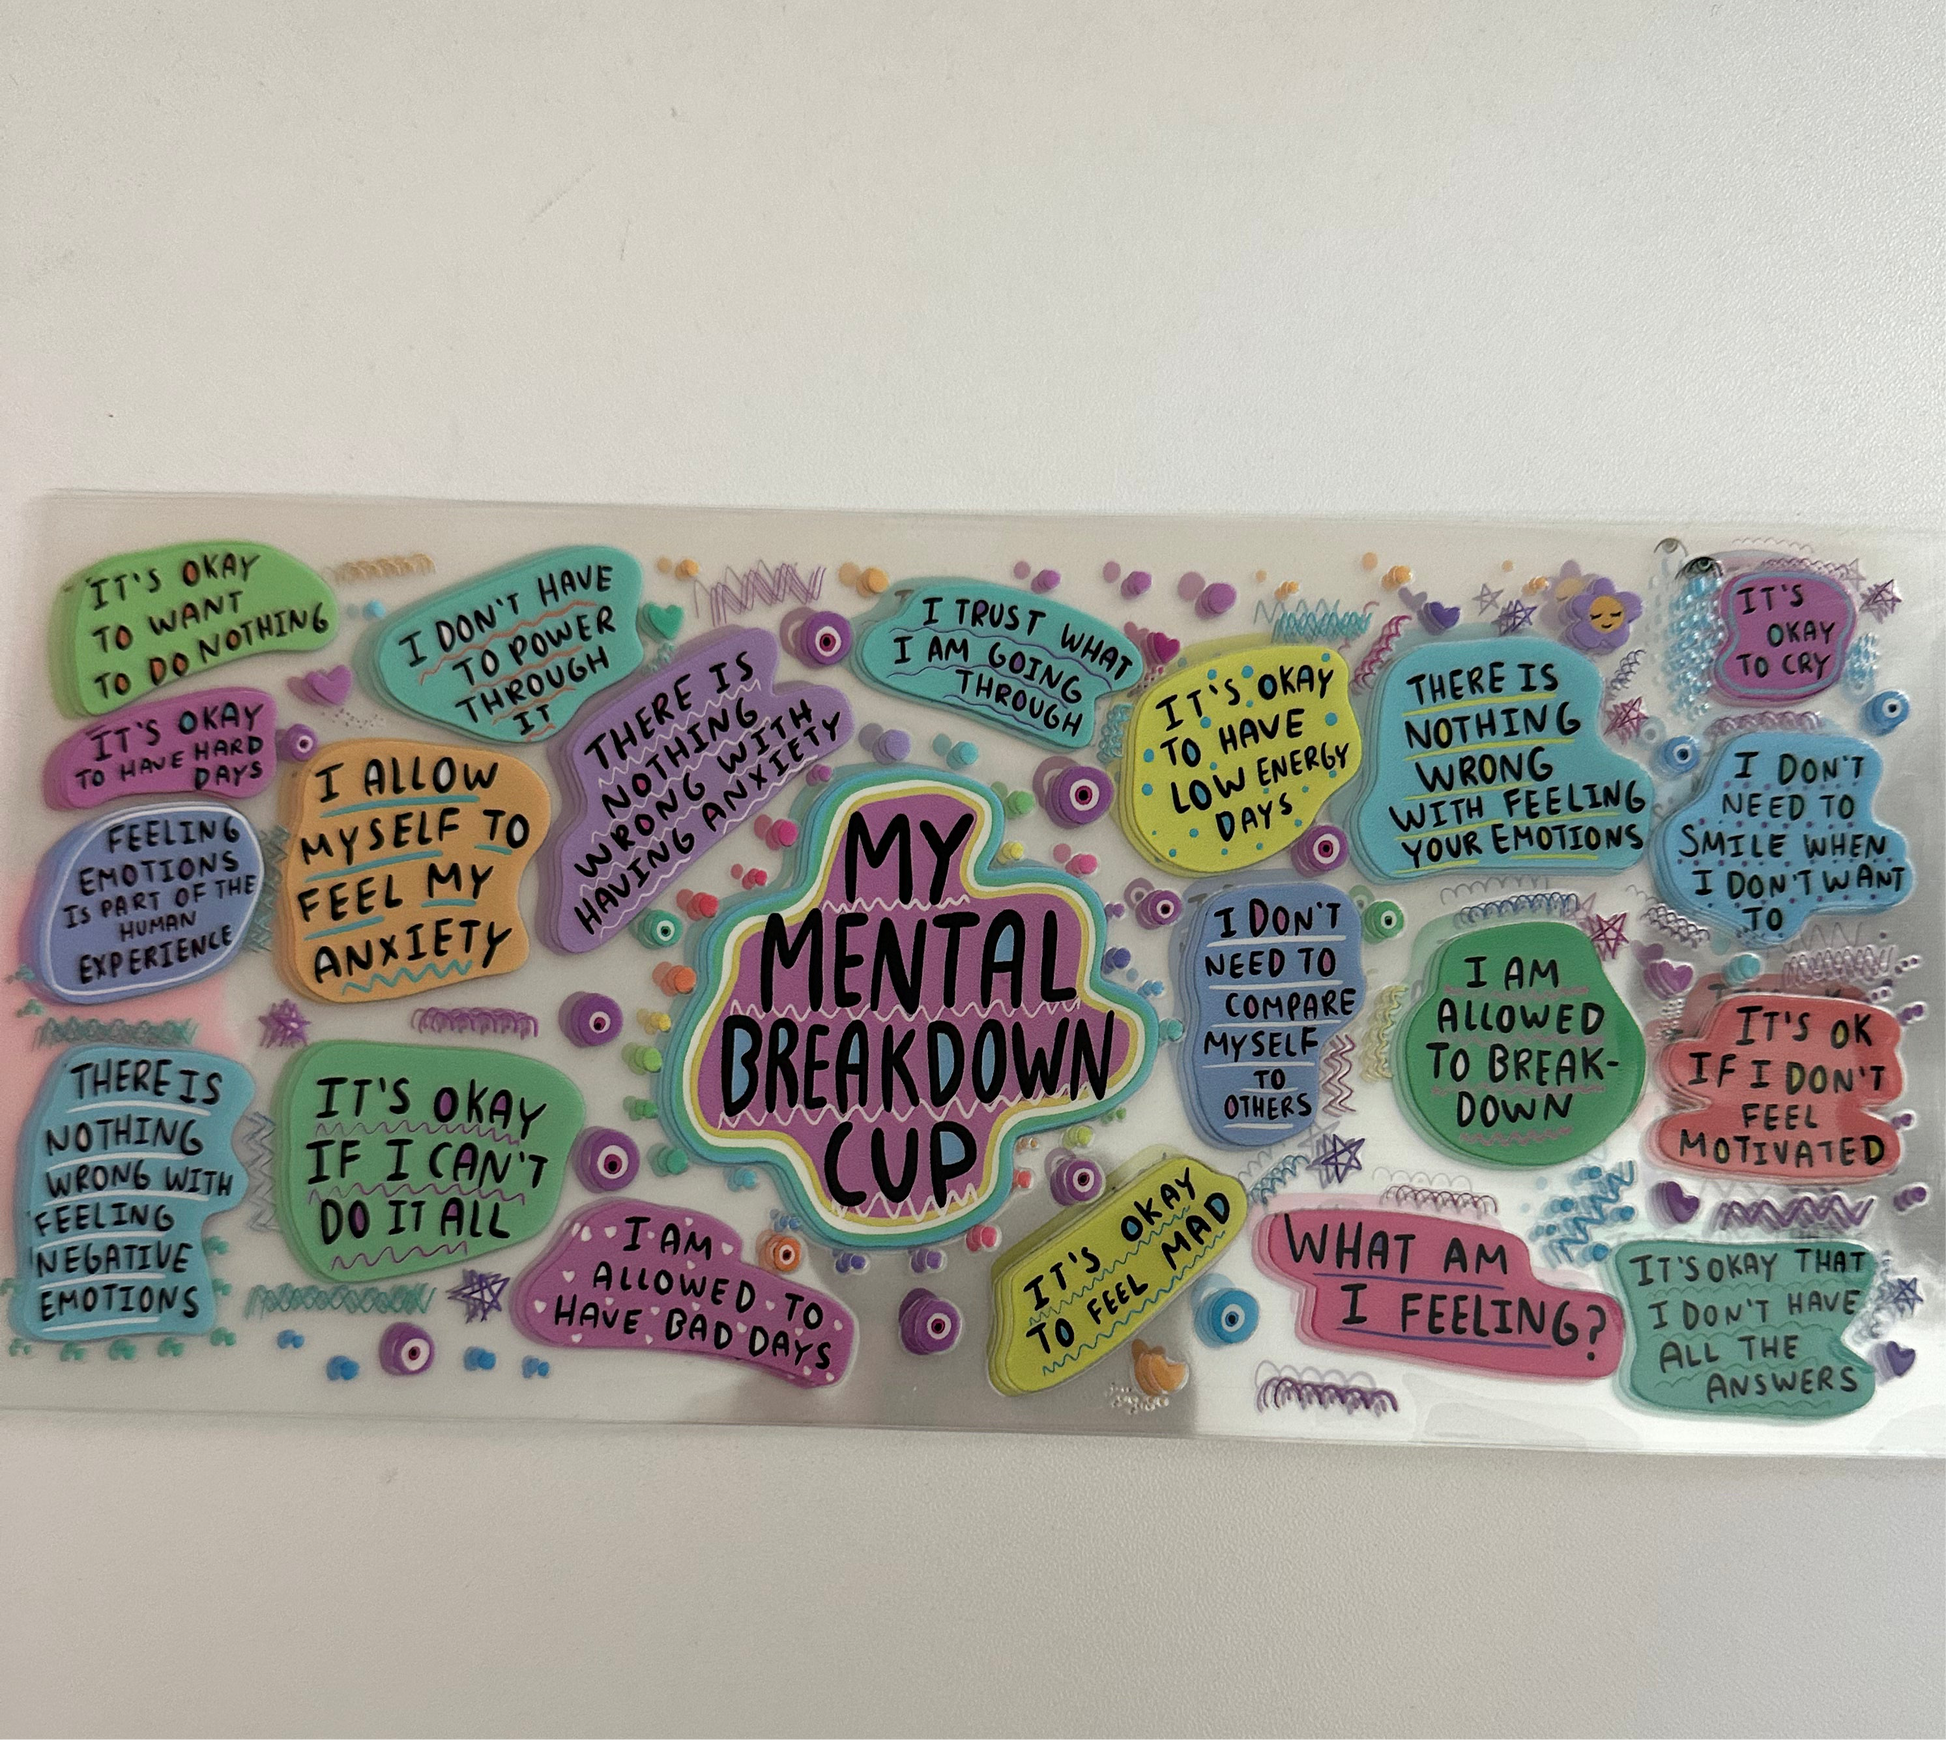 IT'S OKAY
TO WANT
TO DO NOTHING
I DON'T HAVE
TO POWER
THROUGH
IT
I TRUST WHAT
I AM GOING
THROUGH
IT'S
OKAY
TO CRY
IT'S OKAY
TO HAVE HARD
DAYS
THERE IS
NOTHING
WRONG WITH
HAVING ANXIETY
IT'S OKAY
TO HAVE
LOW ENERGY
DAYS
THERE IS
NOTHING
WRONG
WITH FEELING
YOUR EMOTIONS
I DON'T
NEED TO
SMILE WHEN
I DON'T WANT
TO
FEELING
EMOTIONS
IS PART OF THE
HUMAN
EXPERIENCE
I ALLOW
MYSELF TO
FEEL MY
ANXIETY
MY
MENTAL
BREAKDOWN
CUP
I DON'T
NEED TO
COMPARE
MYSELF
TO
OTHERS
I AM
ALLOWED
TO BREAK-
DOWN
IT'S OK
IF I DON'T
FEEL
MOTIVATED
THERE IS
NOTHING
WRONG WITH
FEELING
NEGATIVE
EMOTIONS
IT'S OKAY
IF I CAN'T
DO IT ALL
I AM
ALLOWED TO
HAVE BAD DAYS
IT'S OKAY
TO FEEL MAD
WHAT AM
I FEELING?
IT'S OKAY THAT
I DON'T HAVE
ALL THE
ANSWERS